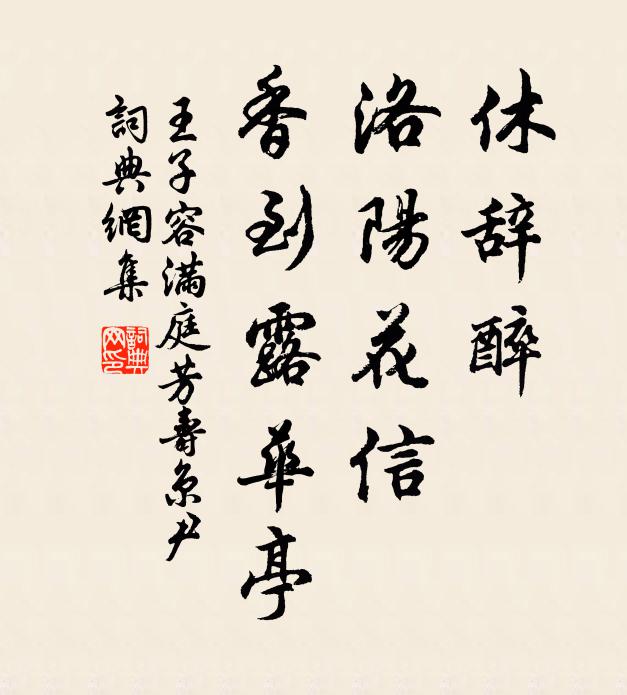 休辞醉
洛陽花信
香到露華亭
王子容滿庭芳壽京尹
詞典網集
詞典網印